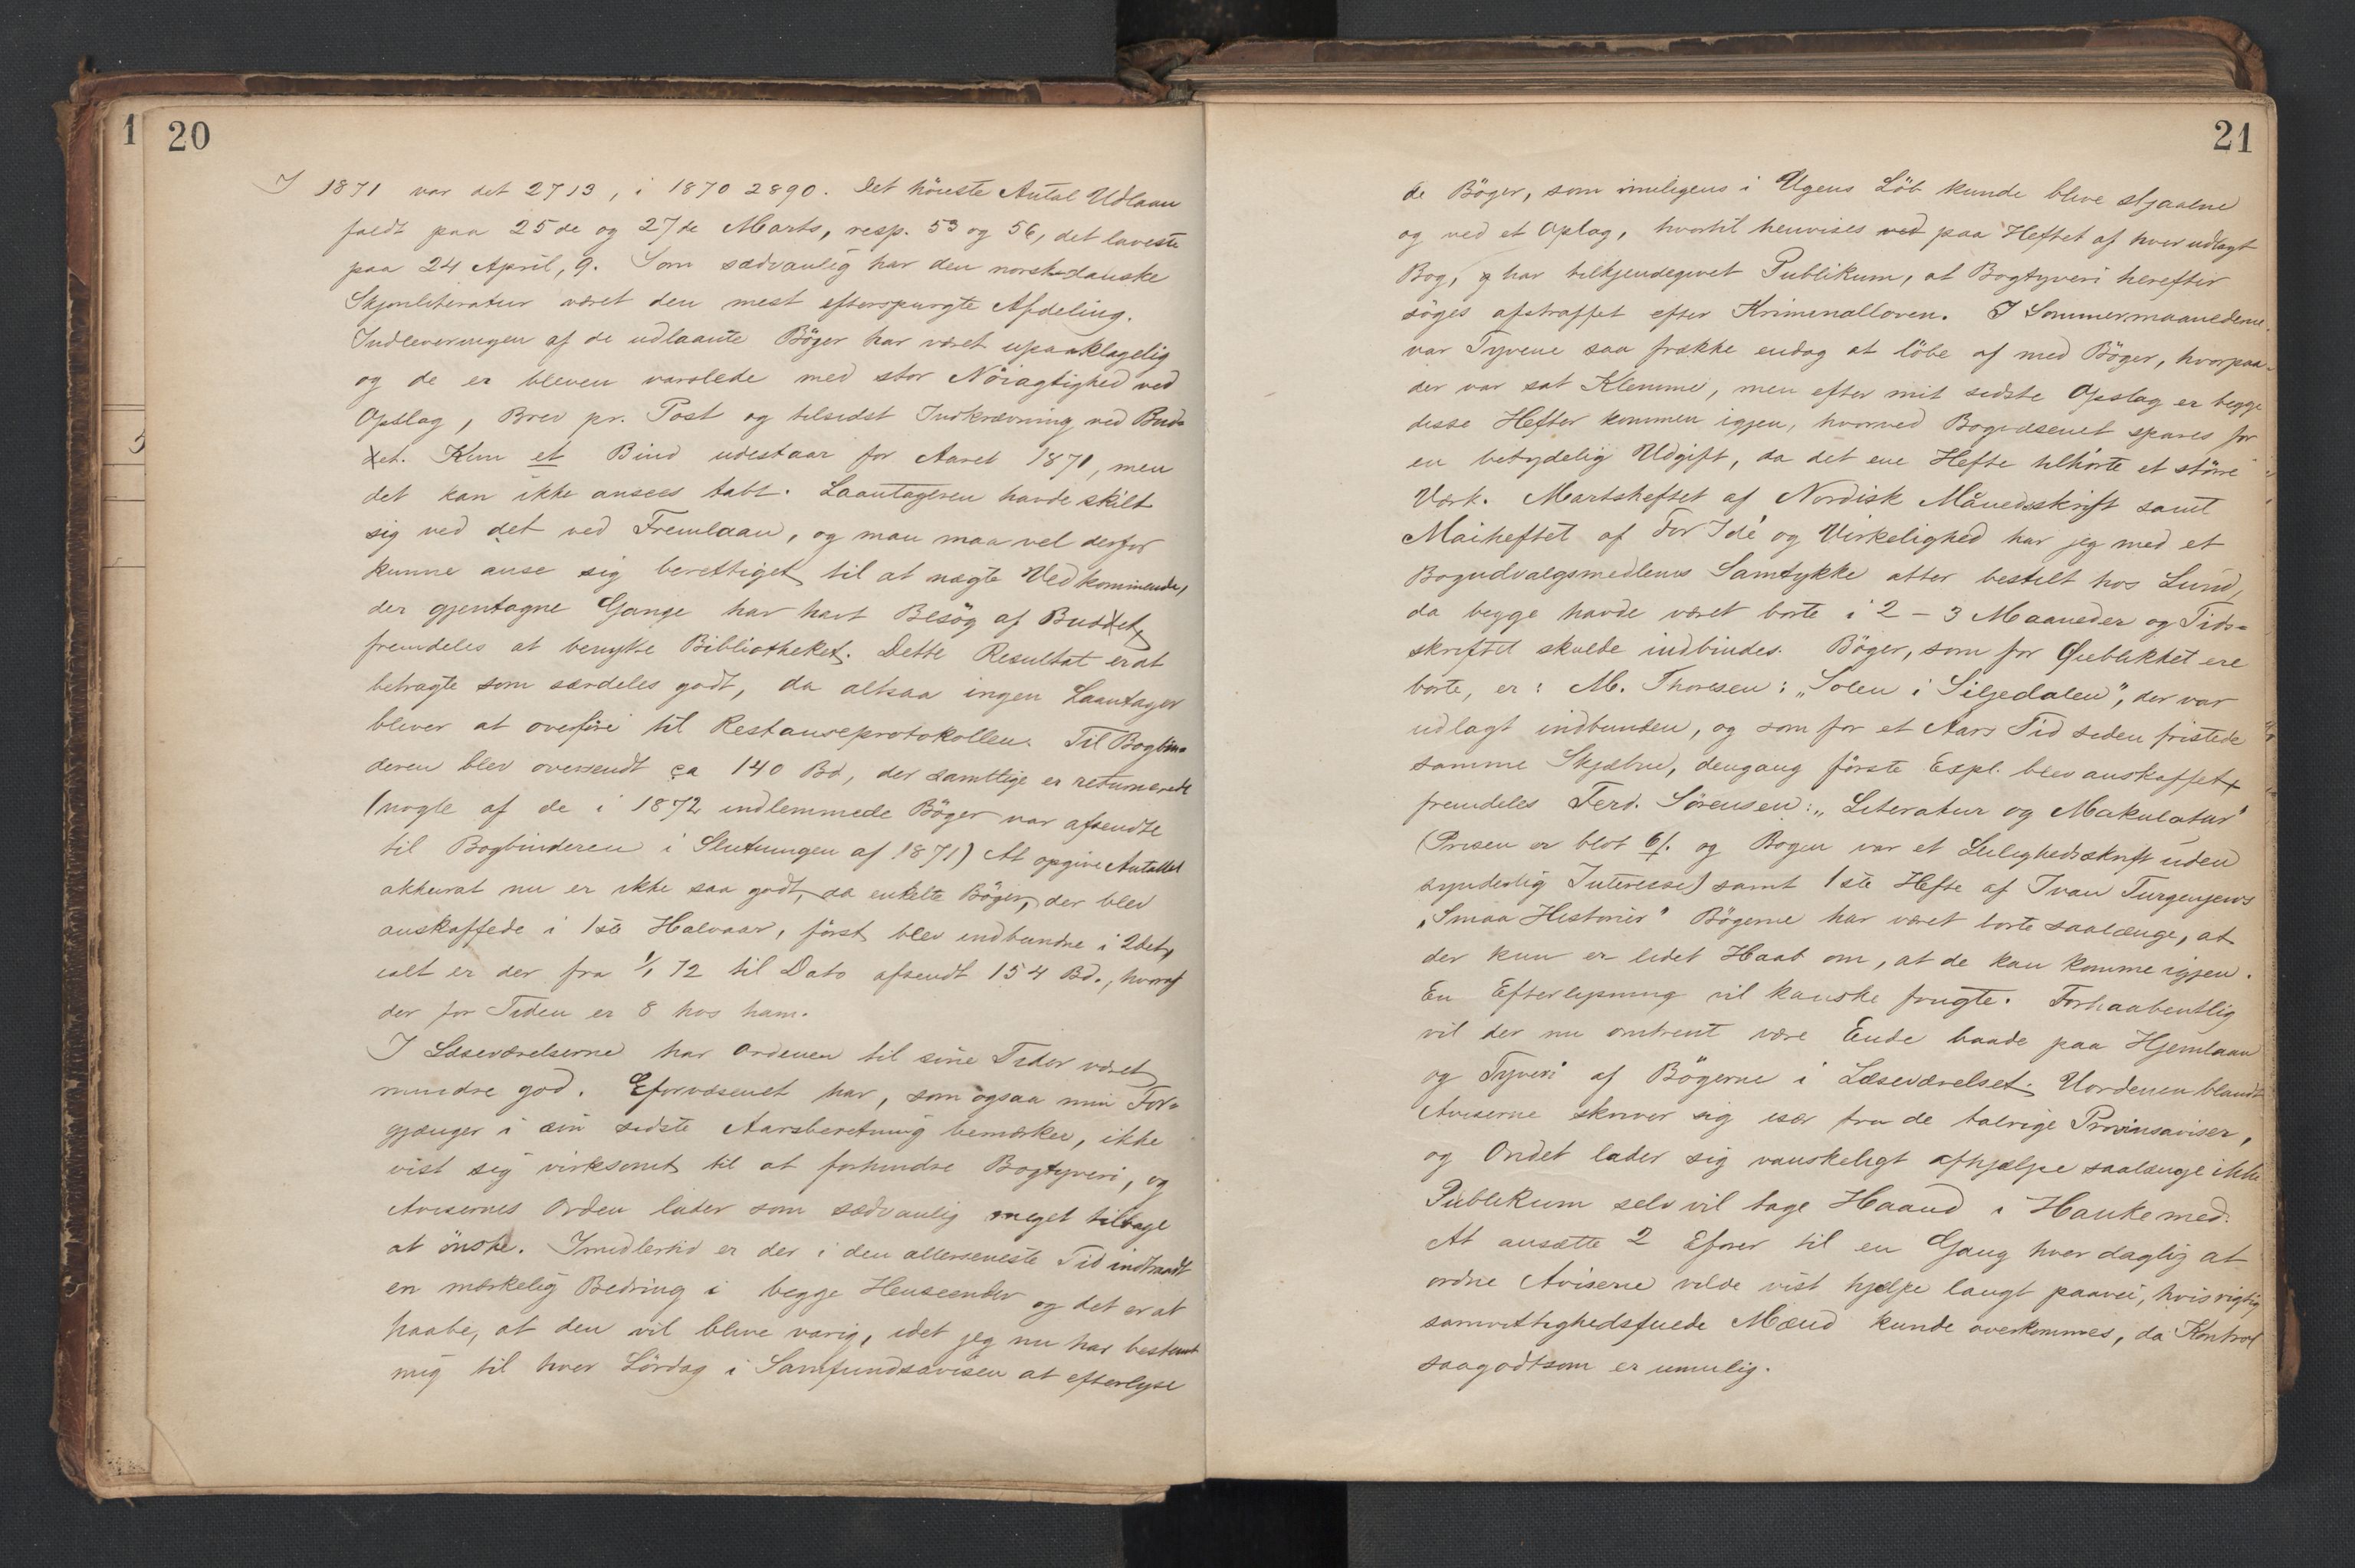 1 20
I 1871 var det 2713, i 1870 2890. Det höieste Antal Udlaan
faldt paa 25de og 27de Marts, resp. 53 og 56, det laveste
paa 24 April, 9. Som sædvanlig har den norsk-danske
Skjønliteratur været den mest efterspurgte Afdeling.
Indleveringen af de udlaante Böger har været upaaklagelig
og de er bleven varslede med stor Nöiagtighed ved
Opslag, Brev pr. Post og tilsidst Indkrævning ved Bud-
det. Kun et Bind udestaar for Aaret 1871, men
det kan ikke ansees tabt. Laantageren havde skilt
sig ved det ved Fremlaan, og man maa vel derfor
kunne anse sig berettiget til at nægte Vedkommende,
der gjentagne Gange har havt Besög af Buddet
fremdeles at benytte Bibliotheket. Dette Resultat er at
betragte som særdeles godt, da altsaa ingen Laantager
bliver at overføre til Restanseprotokollen. Til Bogbin-
deren blev oversendt ca 140 Bd, der samtlige er returnerede
(nogle af de i 1872 indlemmede Böger var afsendte
til Bogbinderen i Slutningen af 1871) At opgive Antallet
akkurat nu er ikke saa godt, da enkelte Böger, der blev
anskaffede i 1ste Halvaar, först blev indbundne i 2det,
ialt er der fra 1/1 72 til Dato afsendt 154 Bd., hvoraf
der for Tiden er 8 hos ham.
I Læseværelserne har Ordenen til sine Tider været
mindre god. Eforvæsenet har, som ogsaa min For-
gjænger i sin sidste Aarsberetning bemærker, ikke
vist sig virksomt til at forhindre Bogtyveri, og
Avisernes Orden lader som sædvanlig meget tilbage
at önske. Imidlertid er der i den allerseneste Tid indtraadt
en mærkelig Bedring i begge Henseender og det er at
haabe, at den vil blive varig, idet jeg nu har bestemt
mig til hver Lördag i Samfundsavisen at efterlyse
21
de Böger, som muligens i Ugens Löb kunde blive stjaalne
og ved et Oplag, hvortil henvises ved paa Heftet af hver udlagt
Bog, har tilkjendegivet Publikum, at Bogtyveri herefter
söges afstraffet efter Kriminalloven. I Sommermaanederne
var Tyvene saa frække endog at löbe af med Böger, hvorpaa
der var sat Klemme, men efter mit sidste Opslag er begge
disse Hefter kommen igjen, hvorved Bogvæsenet spares for
en betydelig Udgift, da det ene Hefte tilhörte et större
Værk. Martsheftet af Nordisk Månedsskrift samt
Maiheftet af For Idé og Virkelighed har jeg med et
Bogudvalgsmedlems Samtykke atter bestilt hos Lund,
da begge havde været borte i 2 - 3 Maaneder og Tids-
skriftet skulde indbindes. Böger, som for Øieblikket ere
borte, er: M. Thoresen: „Solen i Siljedalen", der var
udlagt indbunden, og som for et Aars Tid siden fristede
samme Skjæbne, dengang förste Expl. blev anskaffet,
fremdeles Ferd. Sörensen: „Literatur og Makulatur"
(Prisen er blot 6/. og Bogen var et Leilighedsskrift uden
synderlig Interesse) samt 1ste Hefte af Ivan Turgenjews
„Smaa Historier" Bögerne har været borte saalænge, at
der kun er lidet Haab om, at de kan komme igjen.
En Efterlysning vil kanske frugte. Forhaabentlig
vil der nu omtrent være Ende baade paa Hjemlaan
og Tyveri af Bögerne i Læseværelset. Uordenen blandt
Aviserne skriver sig især fra de talrige Provinsaviser,
og Ondet lader sig vanskeligt afhjælpe saalænge ikke
Publikum selv vil tage Haand i Hanke med.
At ansætte 2 Eforer til en Gang hver daglig at
ordne Aviserne vilde vist hjælpe langt paavei, hvis rigtig
samvittighedsfulde Mænd kunde overkommes, da Kontrol
saagodtsom er umulig.